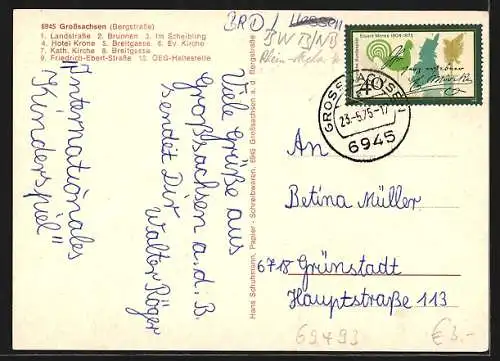 6945 Großsachsen (Bergstraße)
1. Landstraße 2. Brunnen 3. Im Scheibling
4. Hotel Krone 5. Breitgasse 6. Ev. Kirche
7. Kath. Kirche 8. Breitgasse
9. Friedrich-Ebert-Straße 10. OEG-Haltestelle
BRD /
Hessen
BW RP/NB
Eduard Mörike 1804-1875
40
GROSSACHSEN
23.-5.75-17
6945
"Internationales
Kinderspiel"
Viele Grüße aus
Großsachsen a. d. B.
sendet Dir
Walter Röger
Hans Schuhmann, Papier - Schreibwaren, 6945 Großsachsen a. d. Bergstraße
An
Betina Müller
6718 Grünstadt
Hauptstraße 113
69493
€3.-